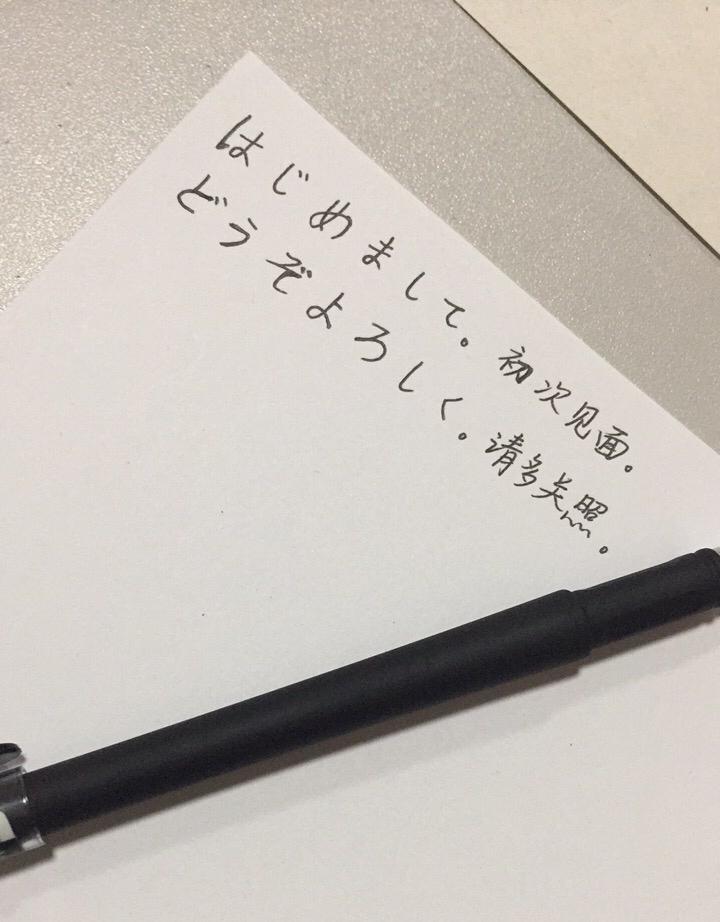 はじめまして。初次见面。
どうぞよろしく。请多关照。